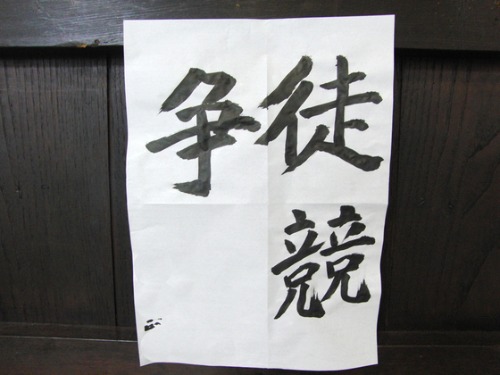 徒競
争